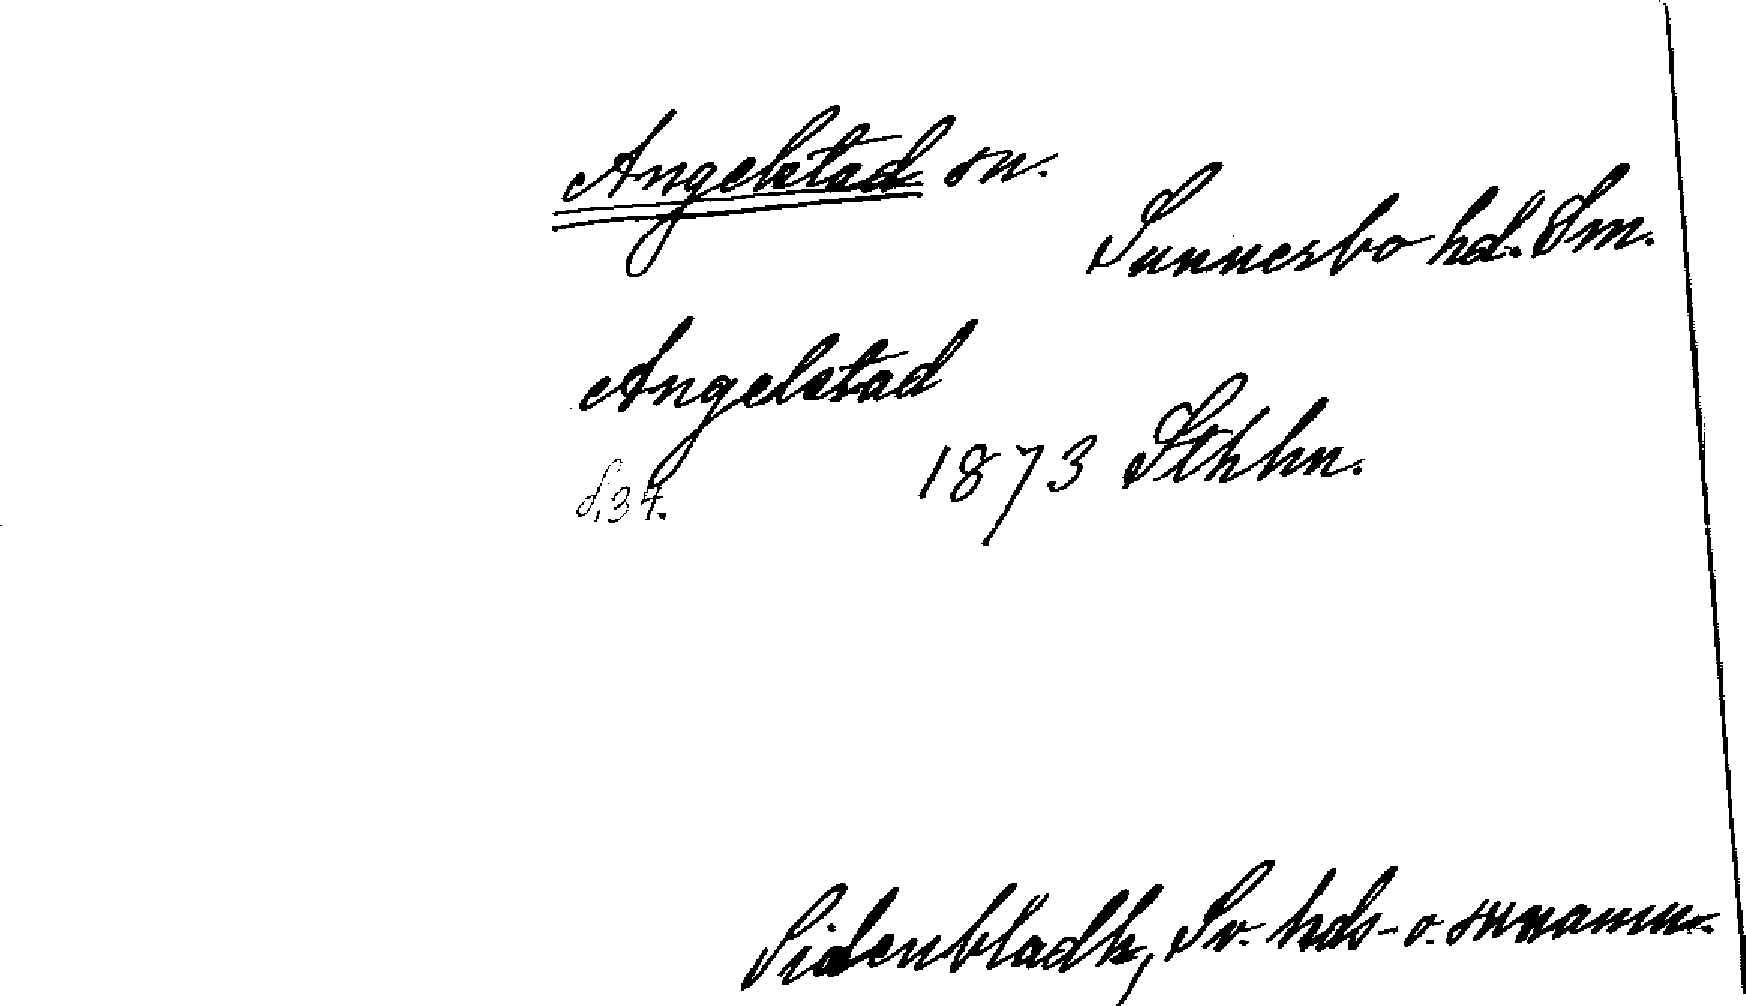 Angelstad sn.
Sunnerbo hd. Sm.
Angelstad
1873 Sthhn.
S. 34.
Sidenbladh, Sv. hds- o. sn namn.